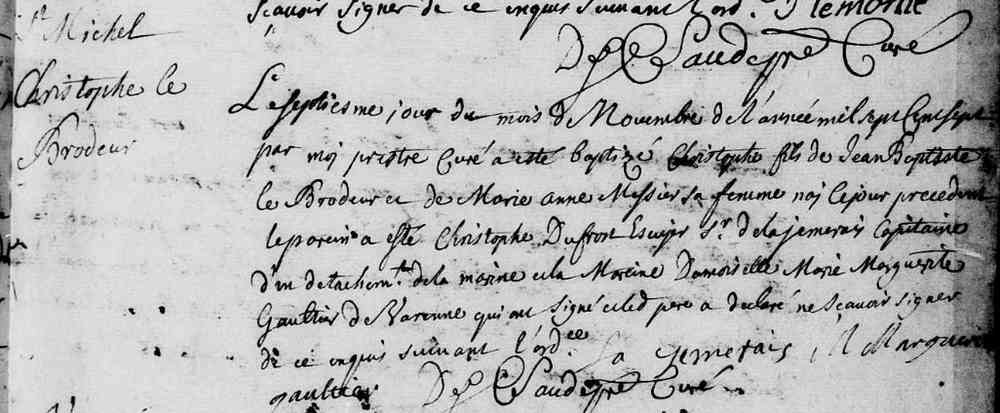 St Michel
Scavoir Signer de ce enquis Suivant l'ord. 
De Saudeyre Curé
Christophe le
Brodeur
Le septiesme jour du mois de Novembre de l'année mil sept Cent sept
par moy prestre Curé a esté baptizé Christophe fils de Jean Baptiste
le Brodeur et de Marie anne Messier sa femme naj le jour precedent
le parein a esté Christophe Dufrost Escuyer Sr. de la jemerais Capitaine
d'un detachemt. de la marine et la Mareine Damoiselle Marie Marguerite
Gaultier de Varenne qui ont Signé et led pere a declaré ne Scavoir Signer
de ce enquis suivant l'ord.ce La Gemerais M Marguerit
gaultier De Saudeyre Curé